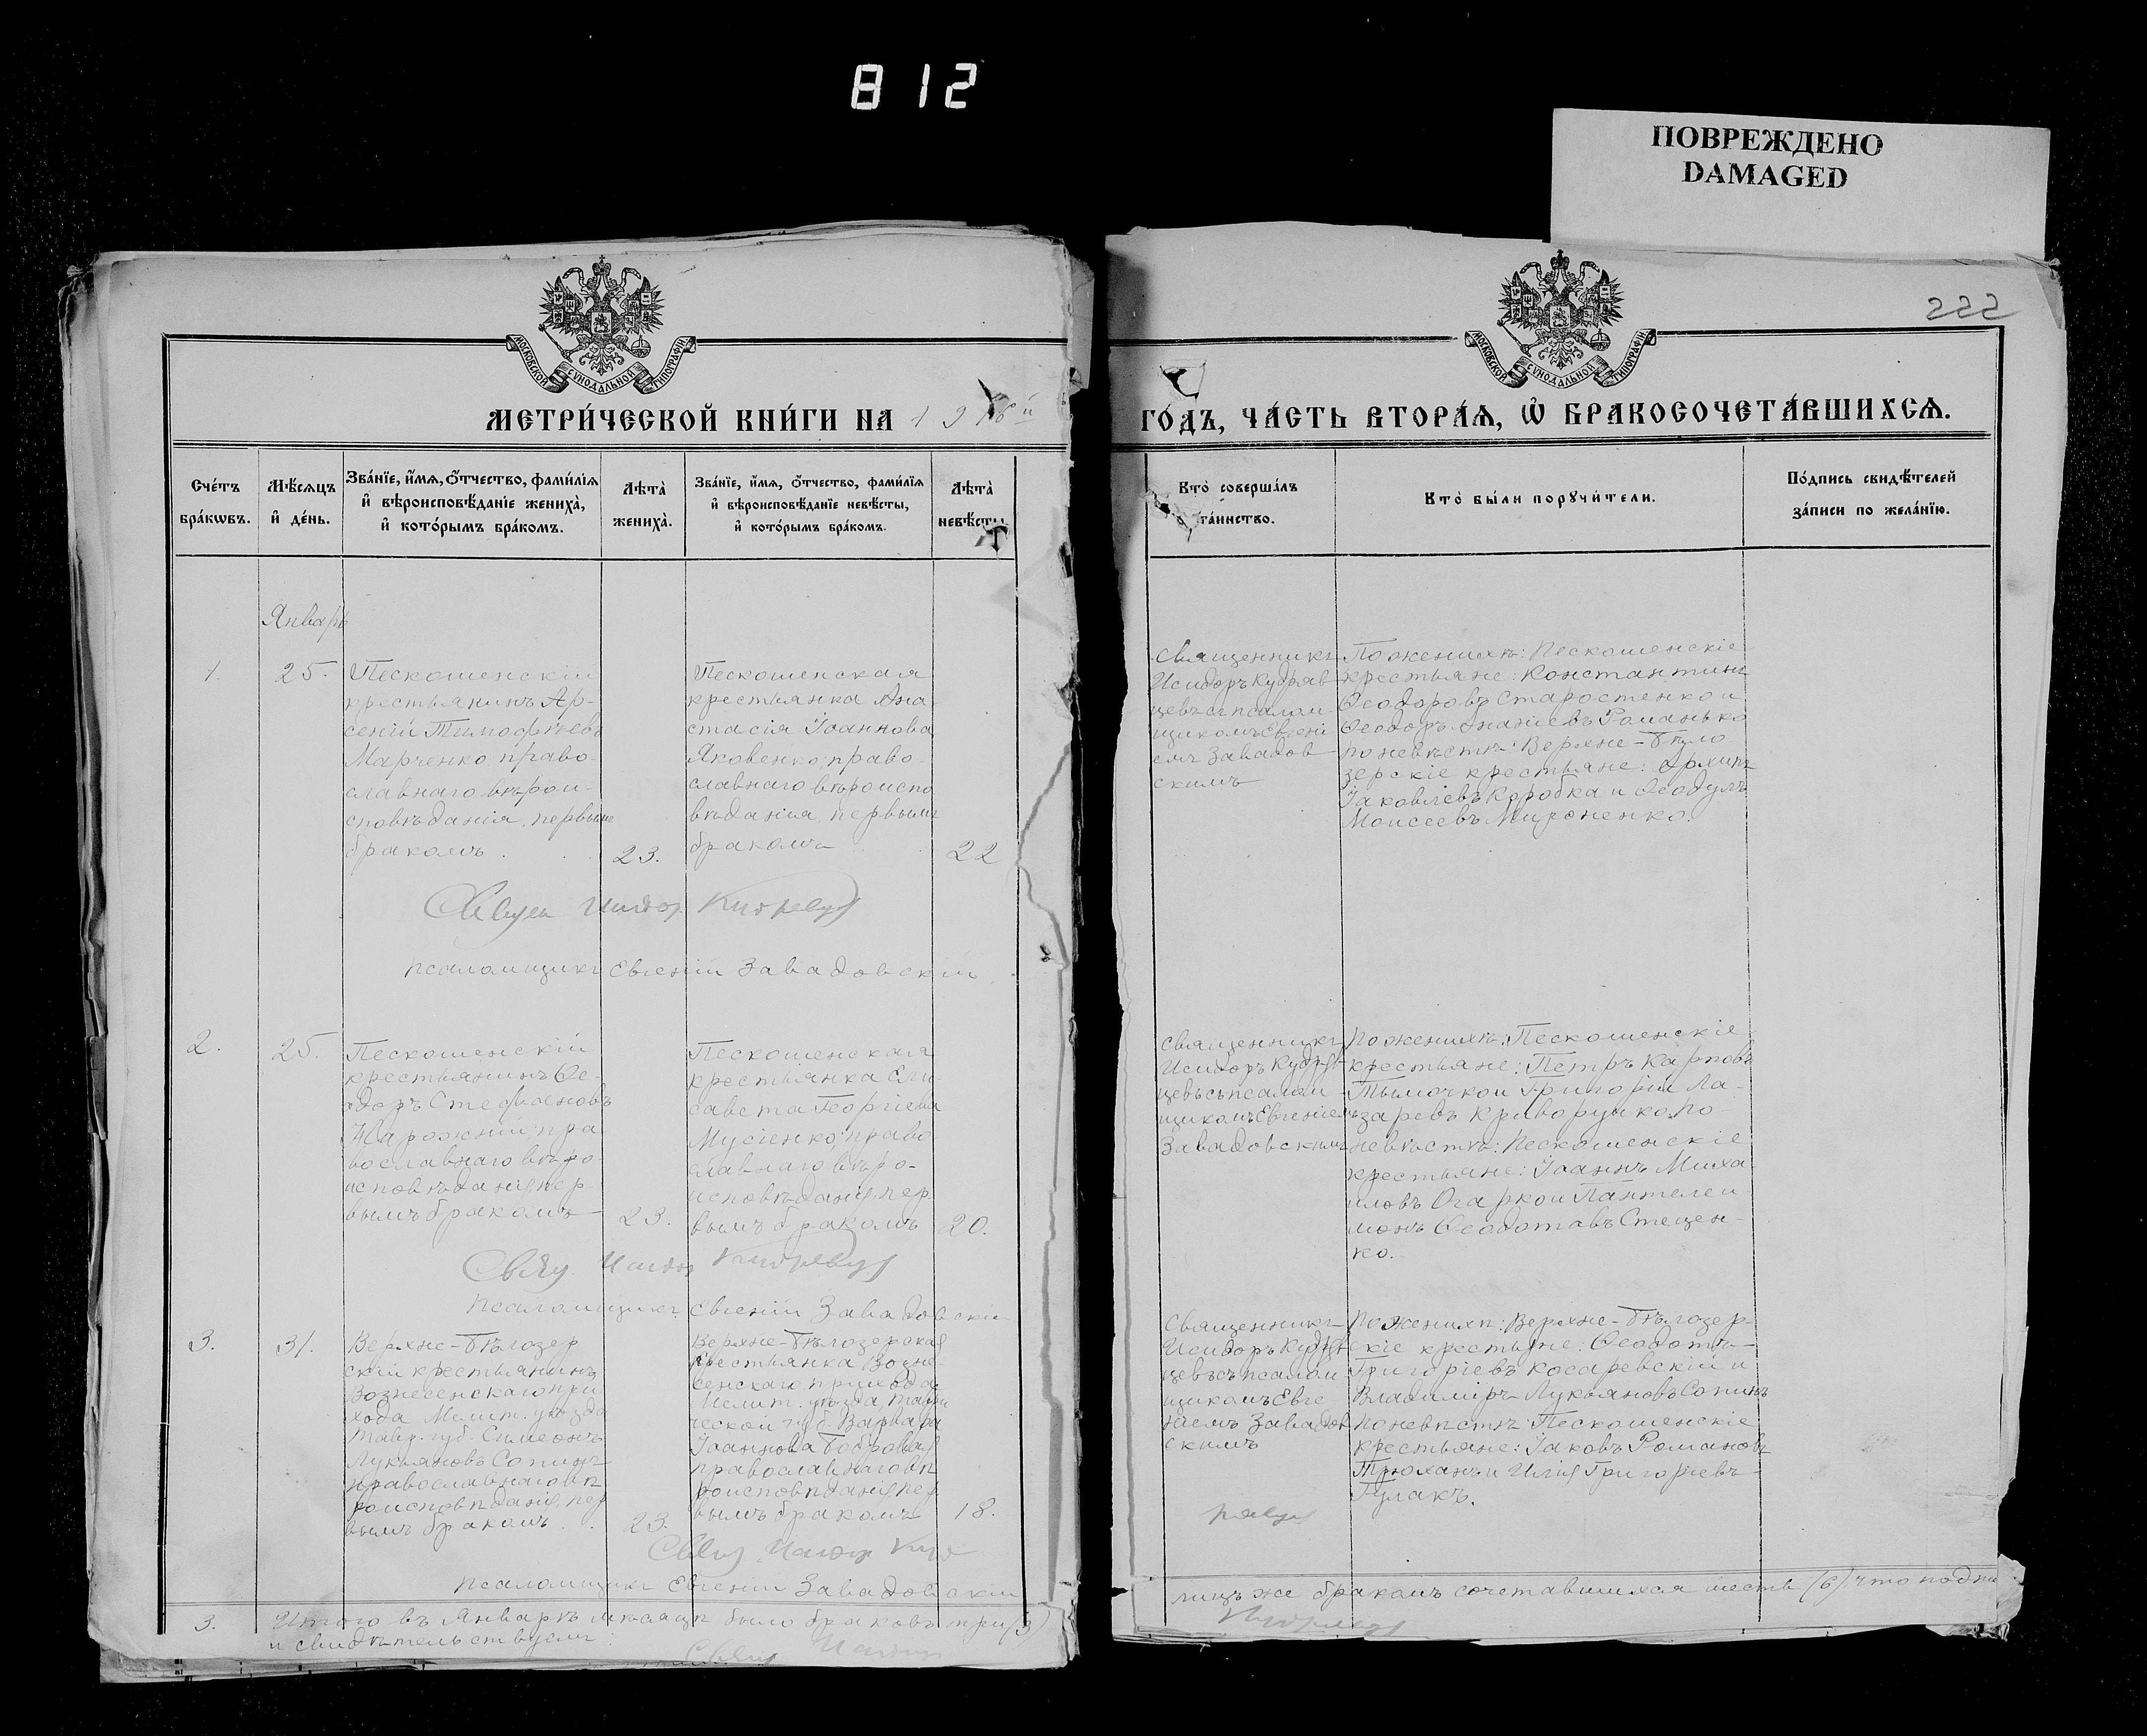 812
ПОВРЕЖДЕНО
DAMAGED
222
МОСКОВСКОЙ СѴНОДАЛЬНОЙ ТИПОГРАФІИ
МОСКОВСКОЙ СѴНОДАЛЬНОЙ ТИПОГРАФІИ
МЕТРИ́ЧЕСКОЙ КНИ́ГИ НА 19 6й ГО́ДЪ, ЧА́СТЬ ВТОРА́Я, Ѡ҆ БРАКОСОЧЕТА́ВШИХСѦ.
Сче́тъ
бра́кѡвъ.
Мѣ́сѧцъ
и҆ де́нь.
Зва́нїе, и҆́мѧ, ѻ҆́тчество, фами́лїѧ
и҆ вѣроисповѣ́данїе жениха̀,
и҆ кото́рымъ бра́комъ.
Лѣ́та̀
жениха̀.
Зва́нїе, и҆́мѧ, ѻ҆́тчество, фами́лїѧ
и҆ вѣроисповѣ́данїе невѣ́сты,
и҆ кото́рымъ бра́комъ.
Лѣ́та̀
невѣ́сты
Кто̀ соверша́лъ
та́инство.
Кто̀ бы́ли порꙋчи́тели.
По́дпись свидѣ́телей
за́писи по жела́нїю.
Январь
1.
25.
Пескошенскій
крестьянинъ Ар-
сеній Тимофѣевъ
Марченко право-
славнаго вѣрои-
сповѣданія, первымъ
бракомъ
23.
Пескошенская
крестьянка Ана
стасія Іоаннова
Яковенко, право-
славнаго вѣроиспо
вѣданія, первымъ
бракомъ
22
Священникъ
Исидоръ Кудряв
цевъ съ псалом
щикомъ Евгені
емъ Завадов
скимъ
По женихѣ: Пескошенскіе
крестьяне: Константинъ
Ѳеодоровъ Старостенко и
Ѳеодоръ Ананіевъ Романько
по невѣстѣ: Верхне-Бѣло
зерскіе крестьяне: Архипъ
Іаковлевъ Коробка и Ѳеодулъ
Моисеевъ Мироненко.
Свящ Исидор Кудрявц
Псаломщикъ Евгеній Завадовскій
2.
25.
Пескошенскій
крестьянинъ Ѳе-
одоръ Стефановъ
Нарожній пра
вославнаго вѣро-
исповѣданія, пер
вымъ бракомъ
23.
Пескошенская
крестьянка Ели-
савета Георгіева
Мусіенко, право
славнаго вѣро-
исповѣданія, пер
вымъ бракомъ
20.
Священникъ
Исидоръ Кудряв-
цевъ съ псалом
щикомъ Евгеніемъ
Завадовскимъ
По женихѣ: Пескошенскіе
крестьяне: Петръ Карповъ
Тымочко и Григорій Ла-
заревъ Криворучко, по
невѣстѣ: Пескошенскіе
крестьяне: Іоаннъ Миха
иловъ Огарко и Пантелеи
монъ Ѳеодотовъ Стецен-
ко.
Свящ. Исидор Кудрявц
Псаломщикъ Евгеній Завадовскій
3.
31.
Верхне-Бѣлозер
скій крестьянинъ
Вознесенскаго при
хода Мелит. уѣзда
Тавр. губ. Симеонъ
Лукьяновъ Сопинъ
православнаго вѣ
роисповѣданія, пер
вымъ бракомъ
23.
Верхне-Бѣлозерская
крестьянка Возне-
сенскаго прихода
Мелит. уѣзда, Таври
ческой губ. Варвара
Іоаннова Бобровая
православнаго вѣ
роисповѣданія, пер
вымъ бракомъ
18.
Священникъ
Исидоръ Кудряв
цевъ съ псалом
щикомъ Евге
ніемъ Завадов
скимъ
По женихѣ: Верхне-Бѣлозер-
скіе крестьяне: Ѳеодотъ
Григоріевъ Косаревскій и
Владиміръ Лукьяновъ Сопинъ
По невѣстѣ: Пескошенскіе
крестьяне: Іаковъ Романовъ
Трюхань и Илія Григоріевъ
Гулакъ.
Свящ Исидор Куд рявц
Псаломщикъ Евгеній Завадовскій
3. Итого въ Январѣ мѣсяцѣ было браковъ три (3) лицъ же бракомъ сочетавшихся шесть (6) что подпи
и свидѣтельствуемъ:
Свящ Исидор Кудрявц